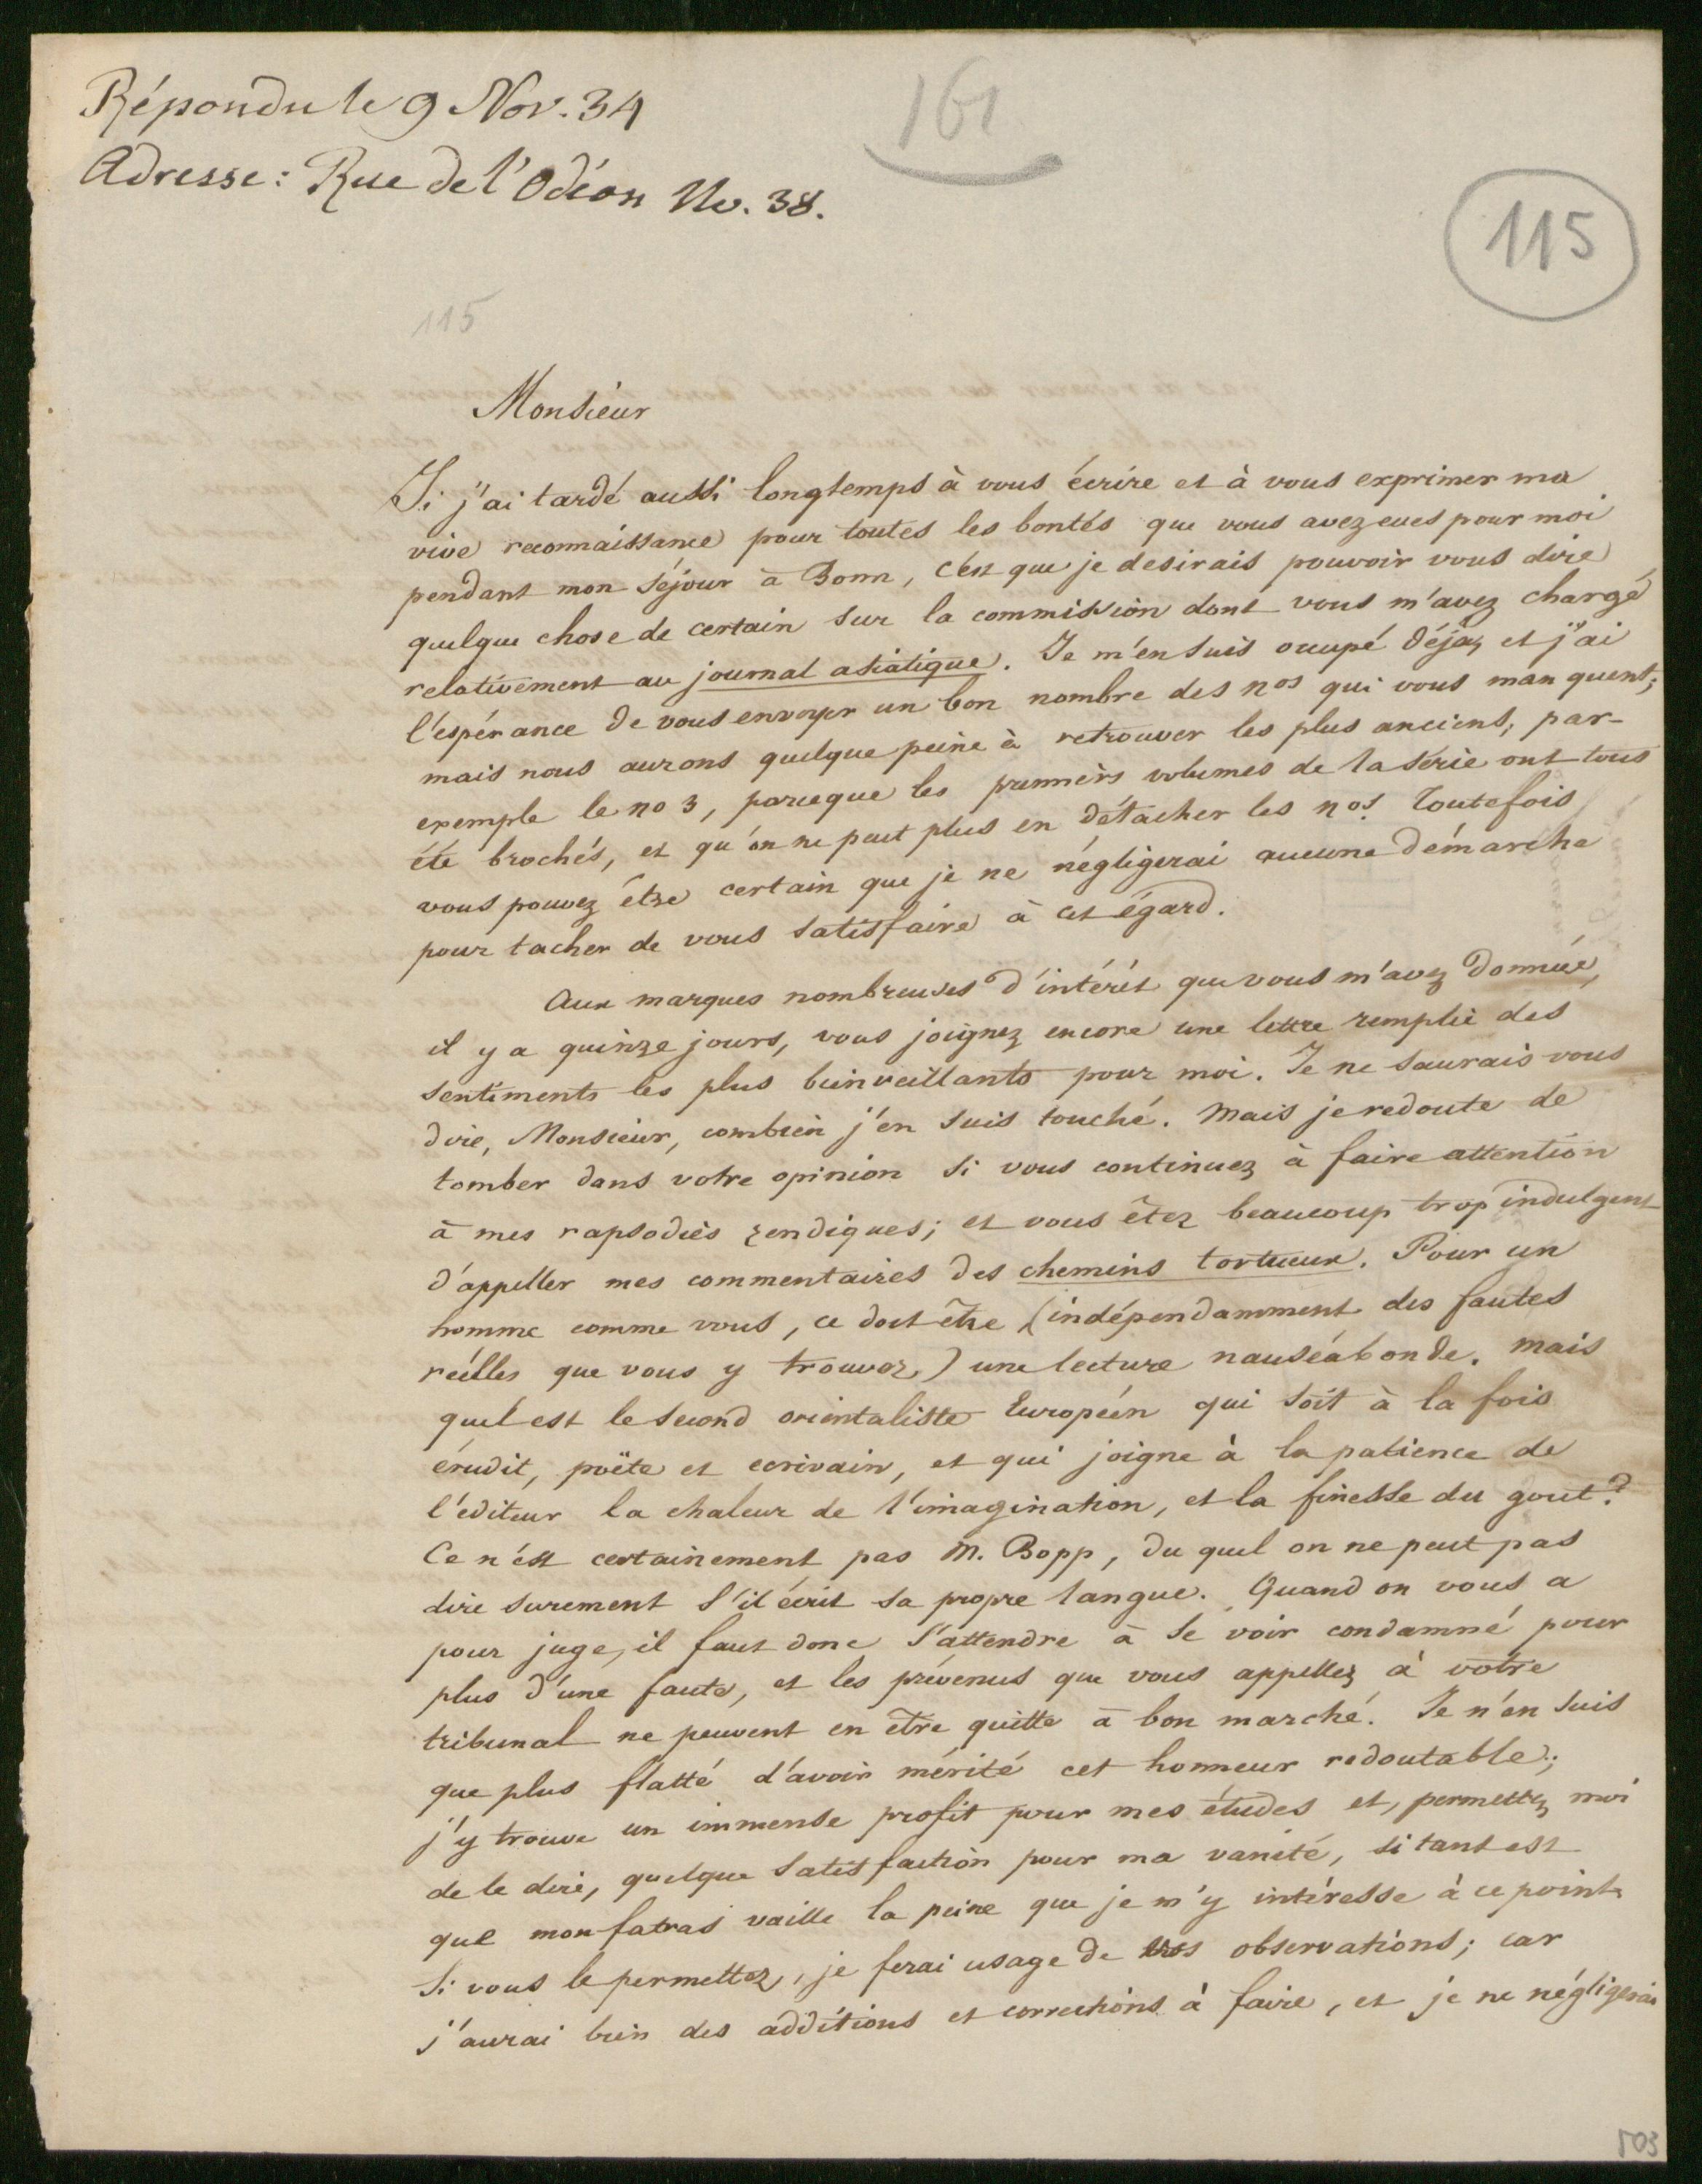 Répondu le 9 Nov. 34
Adresse: Rue de l'Odéon No. 38.
161
115
115
Monsieur
Si j'ai tardé aussi longtemps à vous écrire et à vous exprimer ma
vive reconnaissance pour toutes les bontés que vous avez eues pour moi
pendant mon séjour à Bonn, c'est que je desirais pouvoir vous dire
quelque chose de certain sur la commission dont vous m'avez chargé
relativement au journal asiatique. Je m'en suis occupé déjà, et j'ai
l'espérance de vous envoyer un bon nombre des nos qui vous manquent;
mais nous aurons quelque peine à retrouver les plus anciens, par-
exemple le no 3, parceque les premiers volumes de la série ont tous
été brochés, et qu'on ne peut plus en détacher les nos. Toutefois
vous pouvez être certain que je ne négligerai aucune démarche
pour tacher de vous satisfaire à cet égard.
Aux marques nombreuses d'intérêt que vous m'avez donnée,
il y a quinze jours, vous joignez encore une lettre remplie des
sentiments les plus bienveillants pour moi. Je ne saurais vous
dire, Monsieur, combien j'en suis touché. Mais je redoute de
tomber dans votre opinion si vous continuez à faire attention
à mes rapsodies zendiques; et vous êtez beaucoup trop indulgent
d'appeller mes commentaires des chemins tortueux. Pour un
homme comme vous, ce doit être (indépendamment des fautes
réelles que vous y trouvez) une lecture nauséabonde. Mais
quel est le second orientaliste Européen qui soit à la fois
érudit, poëte et ecrivain, et qui joigne à la patience de
l'editeur la chaleur de l'imagination, et la finesse du gout?
Ce n'est certainement pas M. Bopp, du quel on ne peut pas
dire surement s'il écrit sa propre langue. Quand on vous a
pour juge, il faut donc s'attendre à se voir condamné pour
plus d'une faute, et les prévenus que vous appellez à votre
tribunal ne peuvent en être quitte à bon marché. Je n'en suis
que plus flatté d'avoir mérité cet honneur redoutable;
j'y trouve un immense profit pour mes études et, permettez moi
de le dire, quelque satisfaction pour ma vanité, si tant est
que mon fatras vaille la peine que je m'y intéresse à ce point.
Si vous le permettez, je ferai usage de vos observations; car
j'aurai bien des additions et corrections à faire, et je ne négligerai
503